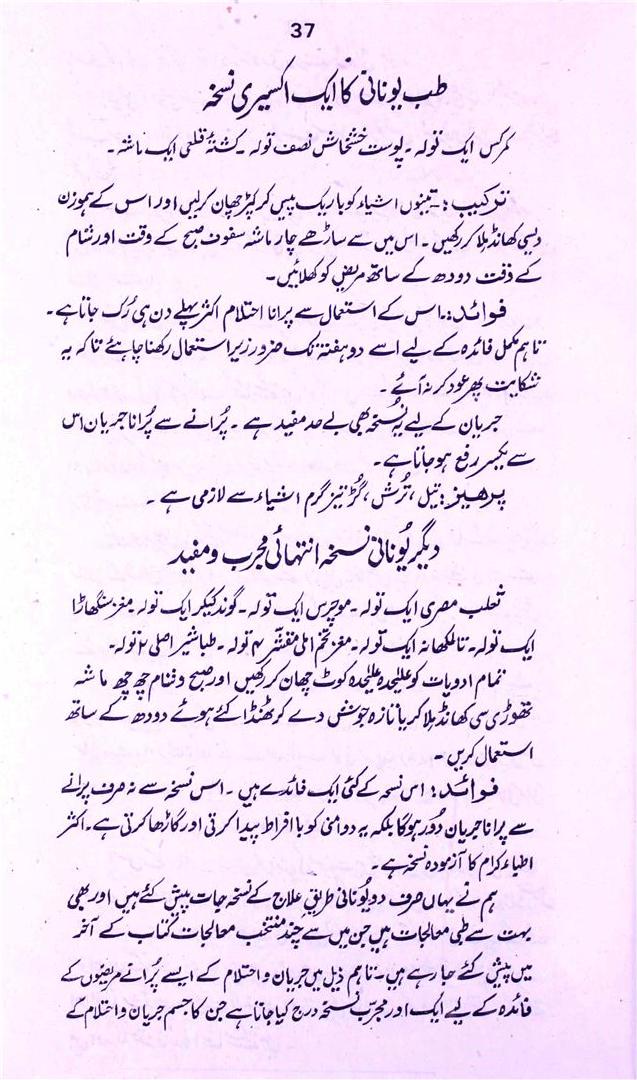 37
طب یونانی کا ایک اکسیری نسخہ
کمرکس ایک تولہ ۔ پوست خشخاش نصف تولہ ۔ کشتۂ قلعی ایک ماشہ ۔
ترکیب :۔ تینوں اشیاء کو باریک پیس کر کپڑ چھان کرلیں اور اس کے ہموزن
دیسی کھانڈ ملا کر رکھیں ۔ اس میں سے ساڑھے چار ماشہ سفوف صبح کے وقت اور شام
کے وقت دودھ کے ساتھ مریض کو کھلائیں ۔
فوائد :۔ اس کے استعمال سے پرانا احتلام اکثر پہلے دن ہی رُک جاتا ہے ۔
تاہم مکمل فائدہ کے لیے اسے دو ہفتہ تک ضرور زیر استعمال رکھنا چاہئے تاکہ یہ
شکایت پھر عود کر نہ آئے ۔
جریان کے لیے یہ نُسخہ بھی بے حد مفید ہے ۔ پُرانے سے پُرانا جریان اس
سے یکسر رفع ہو جاتا ہے ۔
پرھیز : تیل ، تُرش ، گُڑ نیز گرم اشیاء سے لازمی ہے ۔
دیگر یُونانی نسخہ انتہائی مجرب و مفید
ثعلب مصری ایک تولہ ۔ موچرس ایک تولہ ۔ گوند کیکر ایک تولہ ۔ مغز سنگھاڑا
ایک تولہ ۔ تالمکھانہ ایک تولہ ۔ مغز تخم املی مقشّر ۴ تولہ ۔ طباشیر اصلی ۲ تولہ ۔
تمام ادویات کو علیٰحدہ علیٰحدہ کوٹ چھان کر رکھیں اور صبح و شام چھ چھ ماشہ
تھوڑی سی کھانڈ ملا کر یا تازہ جوش دے کر ٹھنڈا کئے ہوئے دودھ کے ساتھ
استعمال کریں ۔
فوائد : اس نسخہ کے کئی ایک فائدے ہیں ۔ اس نسخہ سے نہ صرف پرانے
سے پرانا جریان دُور ہوگا بلکہ یہ دوا منی کو با افراط پیدا کرتی اور گاڑھا کرتی ہے ۔ اکثر
اطباء کرام کا آزمودہ نسخہ ہے ۔
ہم نے یہاں صرف دو یُونانی طریقِ علاج کے نسخہ جات پیش کئے ہیں اور بھی
بہت سے طبی معالجات ہیں جن میں سے چند منتخب معالجات کتاب کے آخر
میں پیش کئے جا رہے ہیں ۔ تاہم ذیل میں جریان و احتلام کے ایسے پُرانے مریضوں کے
فائدہ کے لیے ایک اور مجرّب نسخہ درج کیا جاتا ہے جن کا جسم جریان و احتلام کے